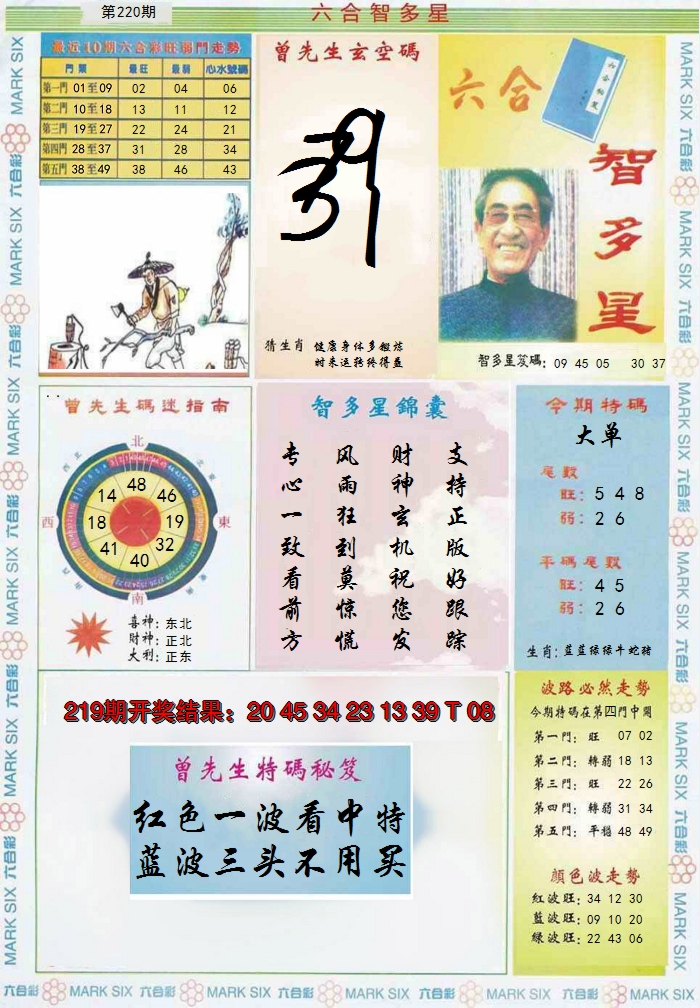 第220期
六合智多星
最近10期六合彩旺弱門走勢
門類 最旺 最弱 心水號碼
第一門 01至09 02 04 06
第二門 10至18 13 11 12
第三門 19至27 22 24 21
第四門 28至37 31 28 34
第五門 38至49 38 46 43
曾先生玄空碼
猜生肖 健康身体多锻炼
时来运转终得益
六合
智多星
智多星笈碼: 09 45 05 30 37
曾先生碼迷指南
北
西北
東北
48
14 46
西 18 19 東
41 32
40
南
喜神: 东北
財神: 正北
大利: 正东
智多星錦囊
支持正版好跟踪
财神玄机祝您发
风雨狂到莫惊慌
专心一致看前方
今期特碼
大单
尾数
旺: 5 4 8
弱: 2 6
平碼尾数
旺: 4 5
弱: 2 6
生肖: 蓝蓝绿绿牛蛇猪
219期开奖结果: 20 45 34 23 13 39 T 08
曾先生特碼秘笈
红色一波看中特
蓝波三头不用买
波路必然走勢
今期特碼在第四門中開
第一門: 旺 07 02
第二門: 轉弱 18 13
第三門: 旺 22 26
第四門: 轉弱 31 34
第五門: 平穩 48 49
顏色波走勢
紅波旺: 34 12 30
藍波旺: 09 10 20
綠波旺: 22 43 06
六合彩 MARK SIX 六合彩 MARK SIX 六合彩 MARK SIX 六合彩 MARK SIX 六合彩